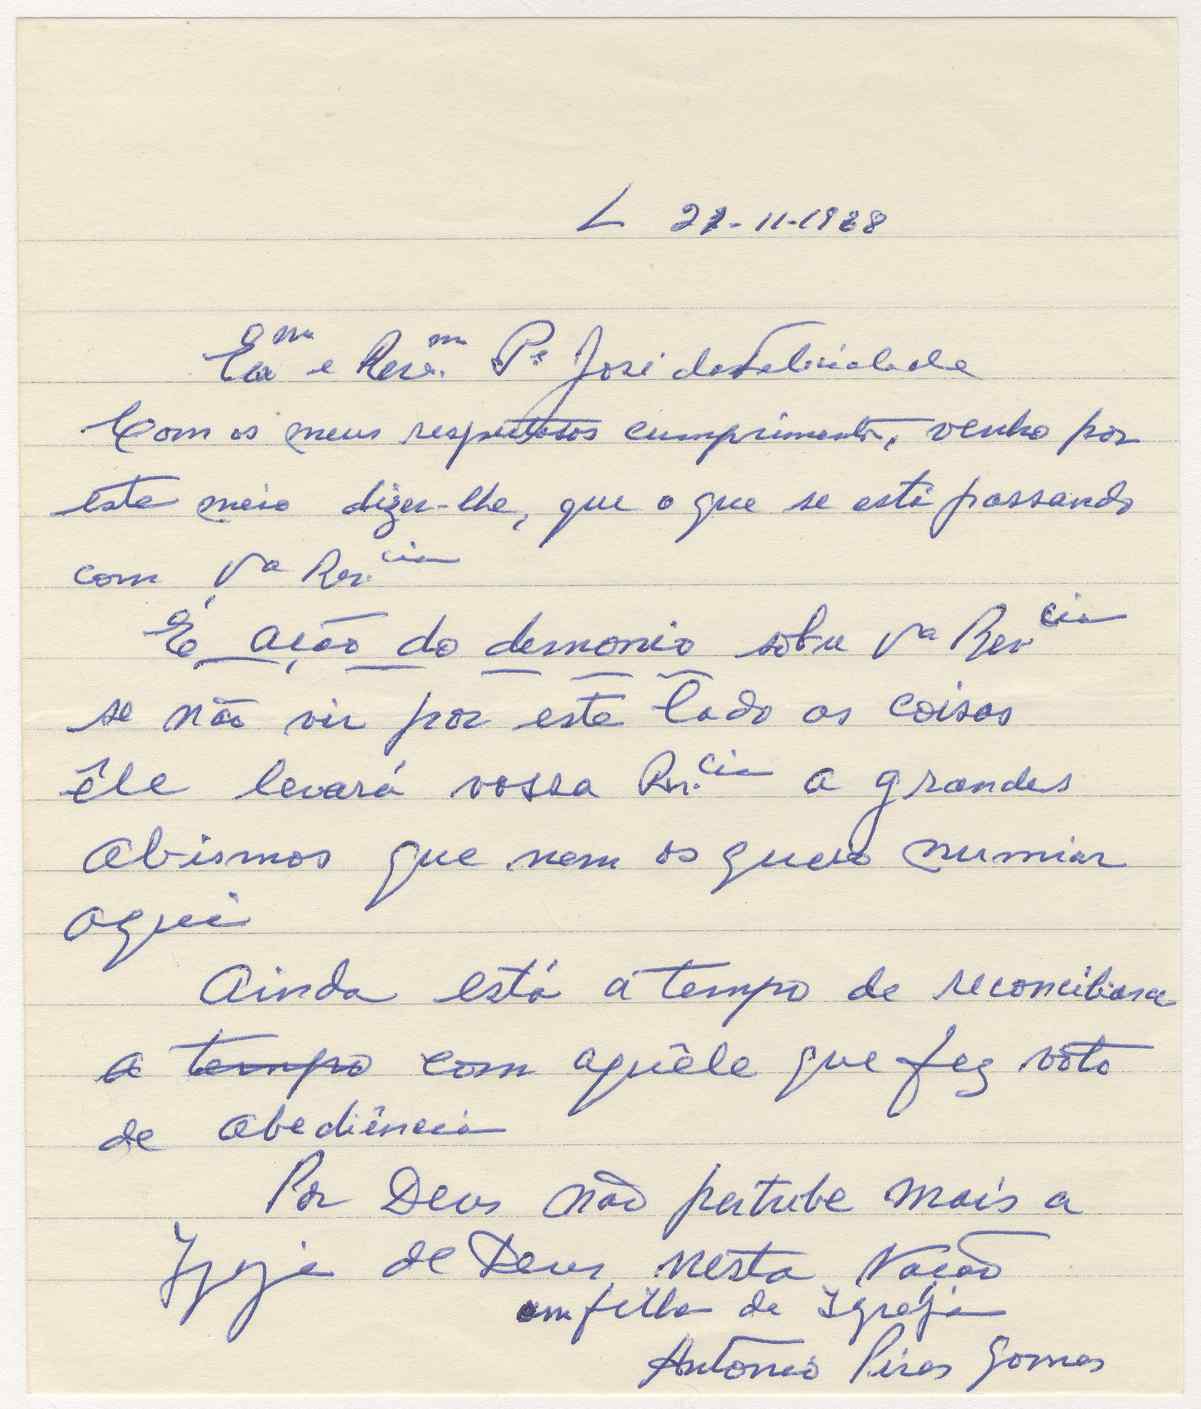 L 22-11-1968
Exmº e Revm. Pe José da Felicidade
Com os meus respeitosos cumprimentos, venho por
este meio dizer-lhe, que o que se está passando
com Vª Rev.cia
É ação do demonio sobre Vª Rev.cia
se não vir por este lado as coisas
êle levará vossa Rev.cia a grandes
abismos que nem os quero numiar
aqui
Ainda está a tempo de reconciliarse
a tempo com aquêle que fez voto
de obediência
Por Deus não pertube mais a
Igreja de Deus nesta Nação
um filho da Igreja
António Pires Gomes